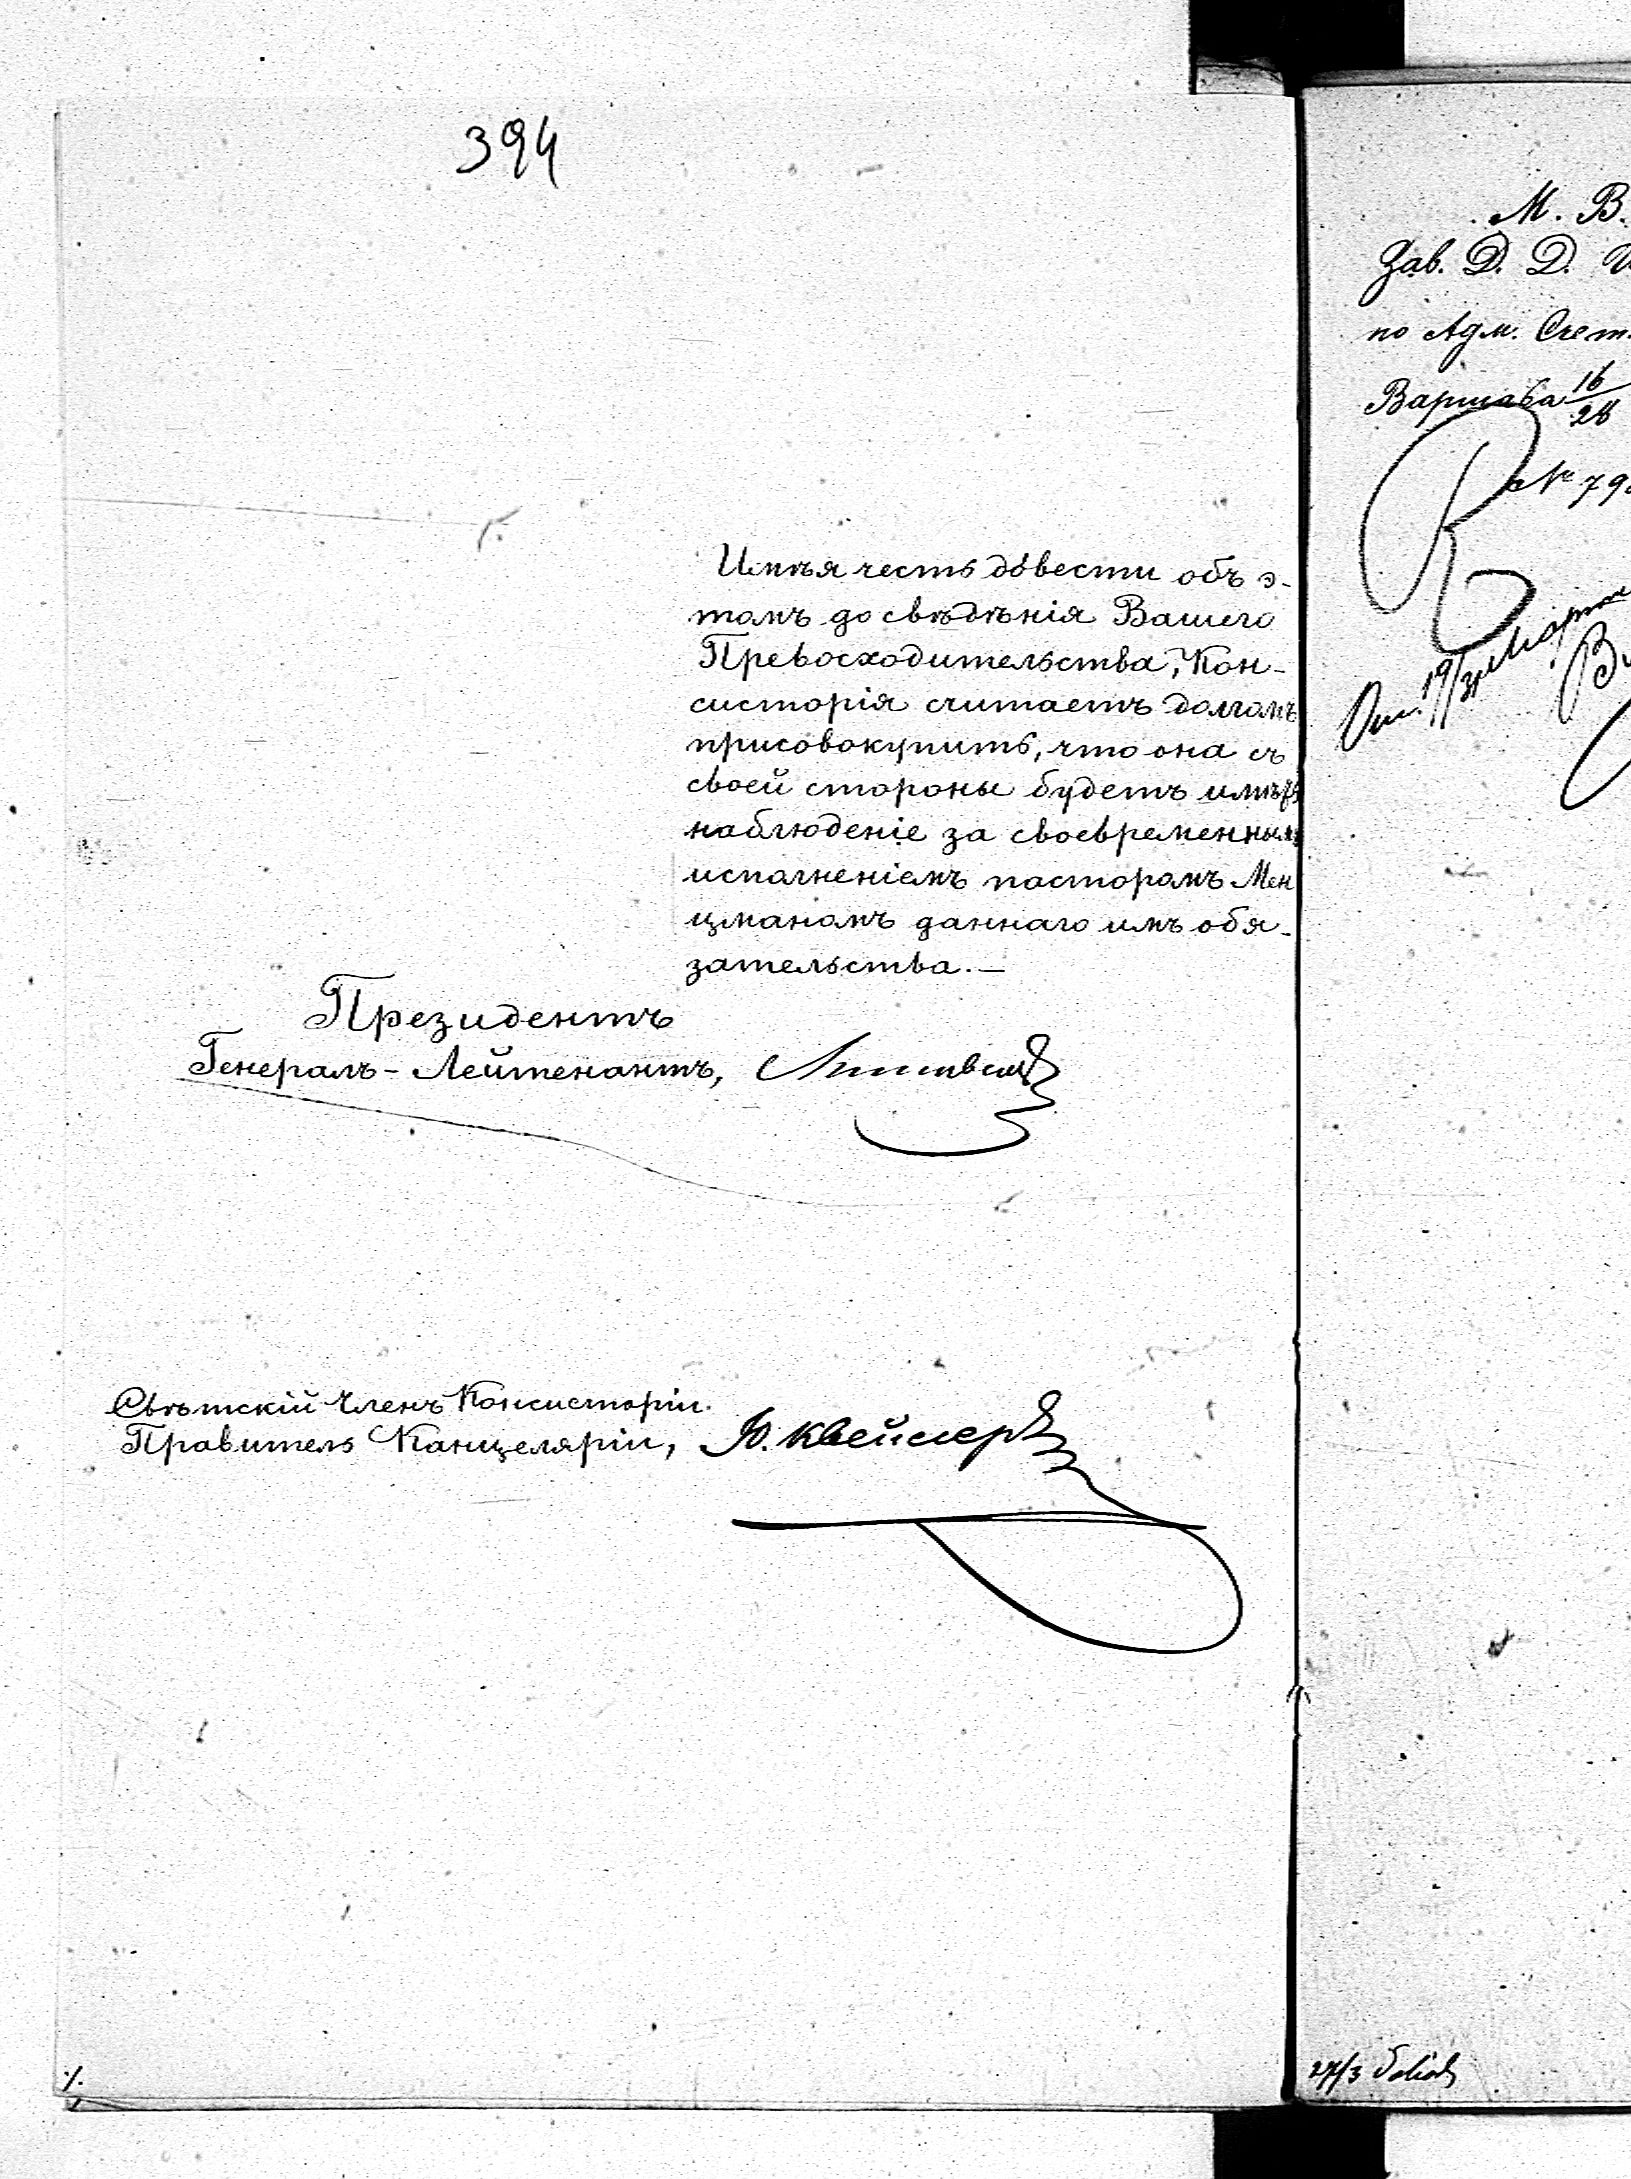 394
Имѣя честь довести объ э-
томъ до свѣдѣнія Вашего
Превосходительства, Кон-
систорія считаетъ долгомъ
присовокупить, что она съ
своей стороны будетъ имѣть
наблюденіе за своевременнымъ
исполненіемъ пасторомъ Мен
цманомъ даннаго имъ обя-
зательства.—
Президентъ
Генералъ-Лейтенантъ,
Свѣтскій Членъ Консисторіи.
Правитель Канцеляріи, Ю. Квейссер
М. В.
Зав. Д. Д. И
по Адм. Счет.
Варшава 16/28
№ 79
27/3